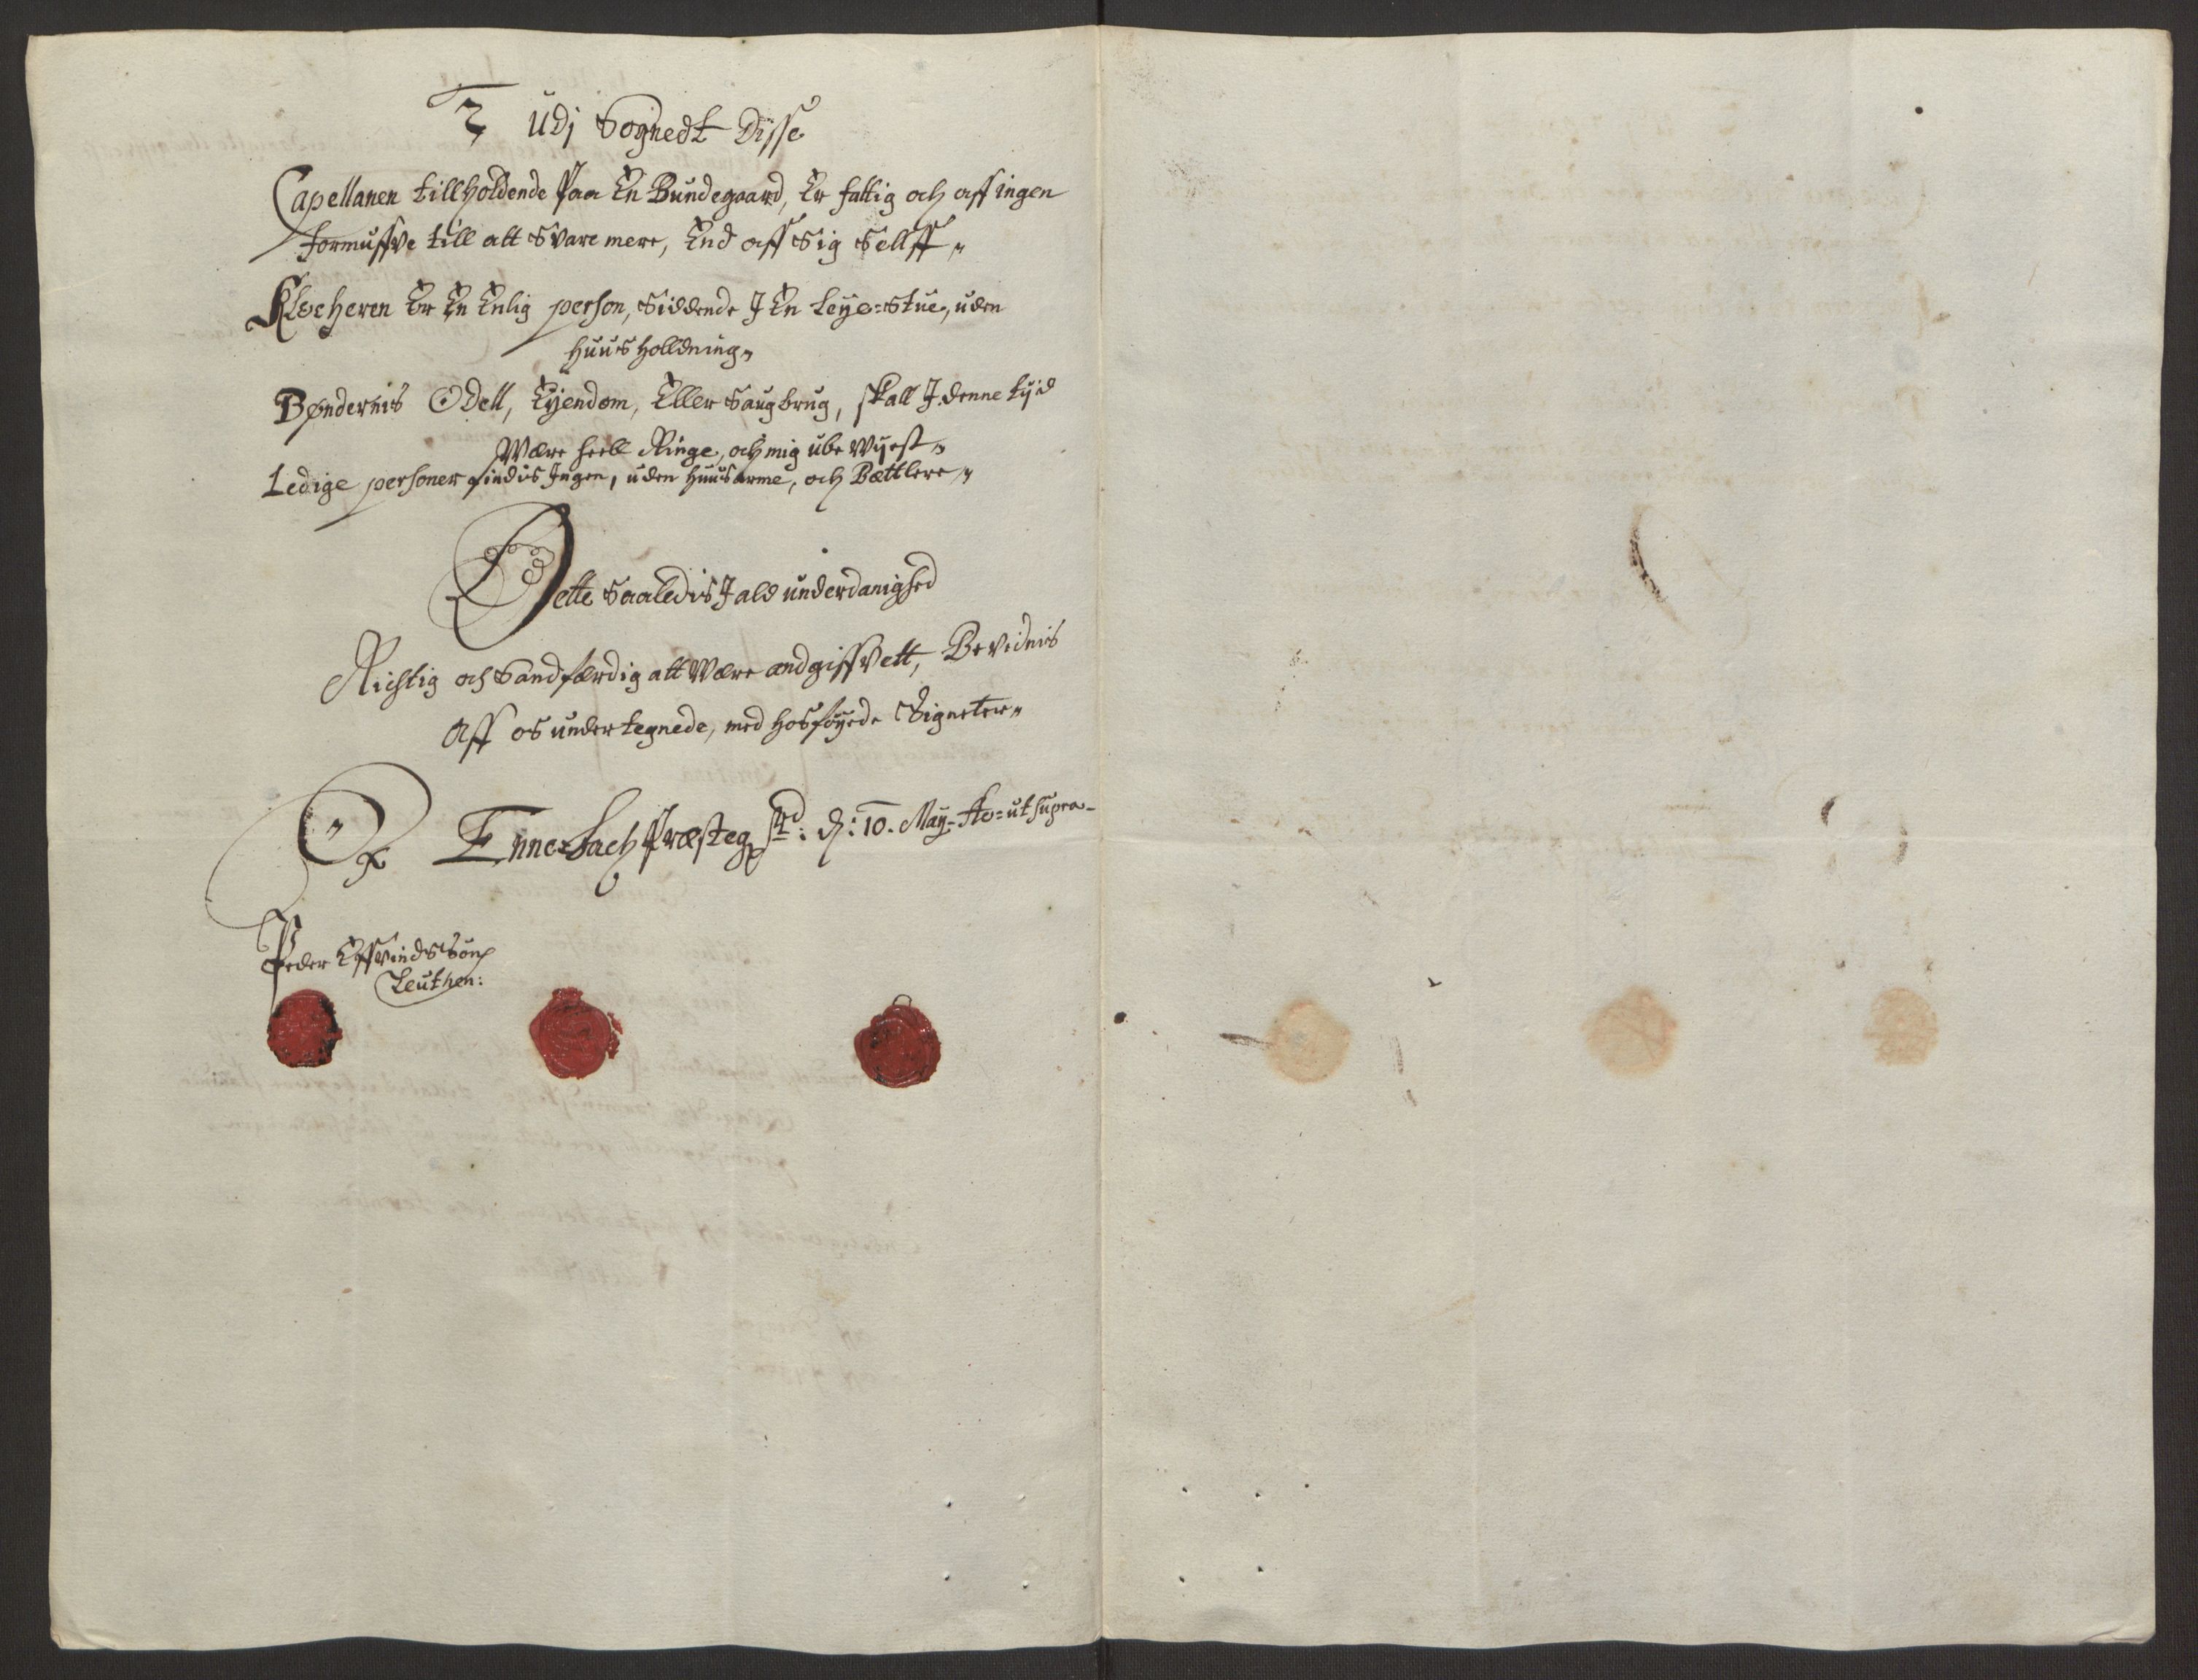 udj Sognedt disse
Capellanen tillholdende Paa En Bundegaard, Er fattig och aff ingen
formuffve till att Svare mere, End aff Sig Sellff„
Klocheren Er En Enlig person, Siddende J En Leye-Stue, uden
huusholldning„
Bøndernis Odell, Eyendom, Eller Saugbrug, skall J denne tijd
Være heel Ringe, och mig ube Vyest„
Ledige personer findis Jngen, uden huusarme, och Bættlere„
Dette Saaledis J ald underdanighed
Richtig och Sandfærdig att Være andgiffvett, Bevidnis
Aff os undertegnede, med hosføyede Signeter„
Ennebach Præstegrd: d: 10. May= Ao= ut supra-
Peder Effvindssøn
Leuthen: